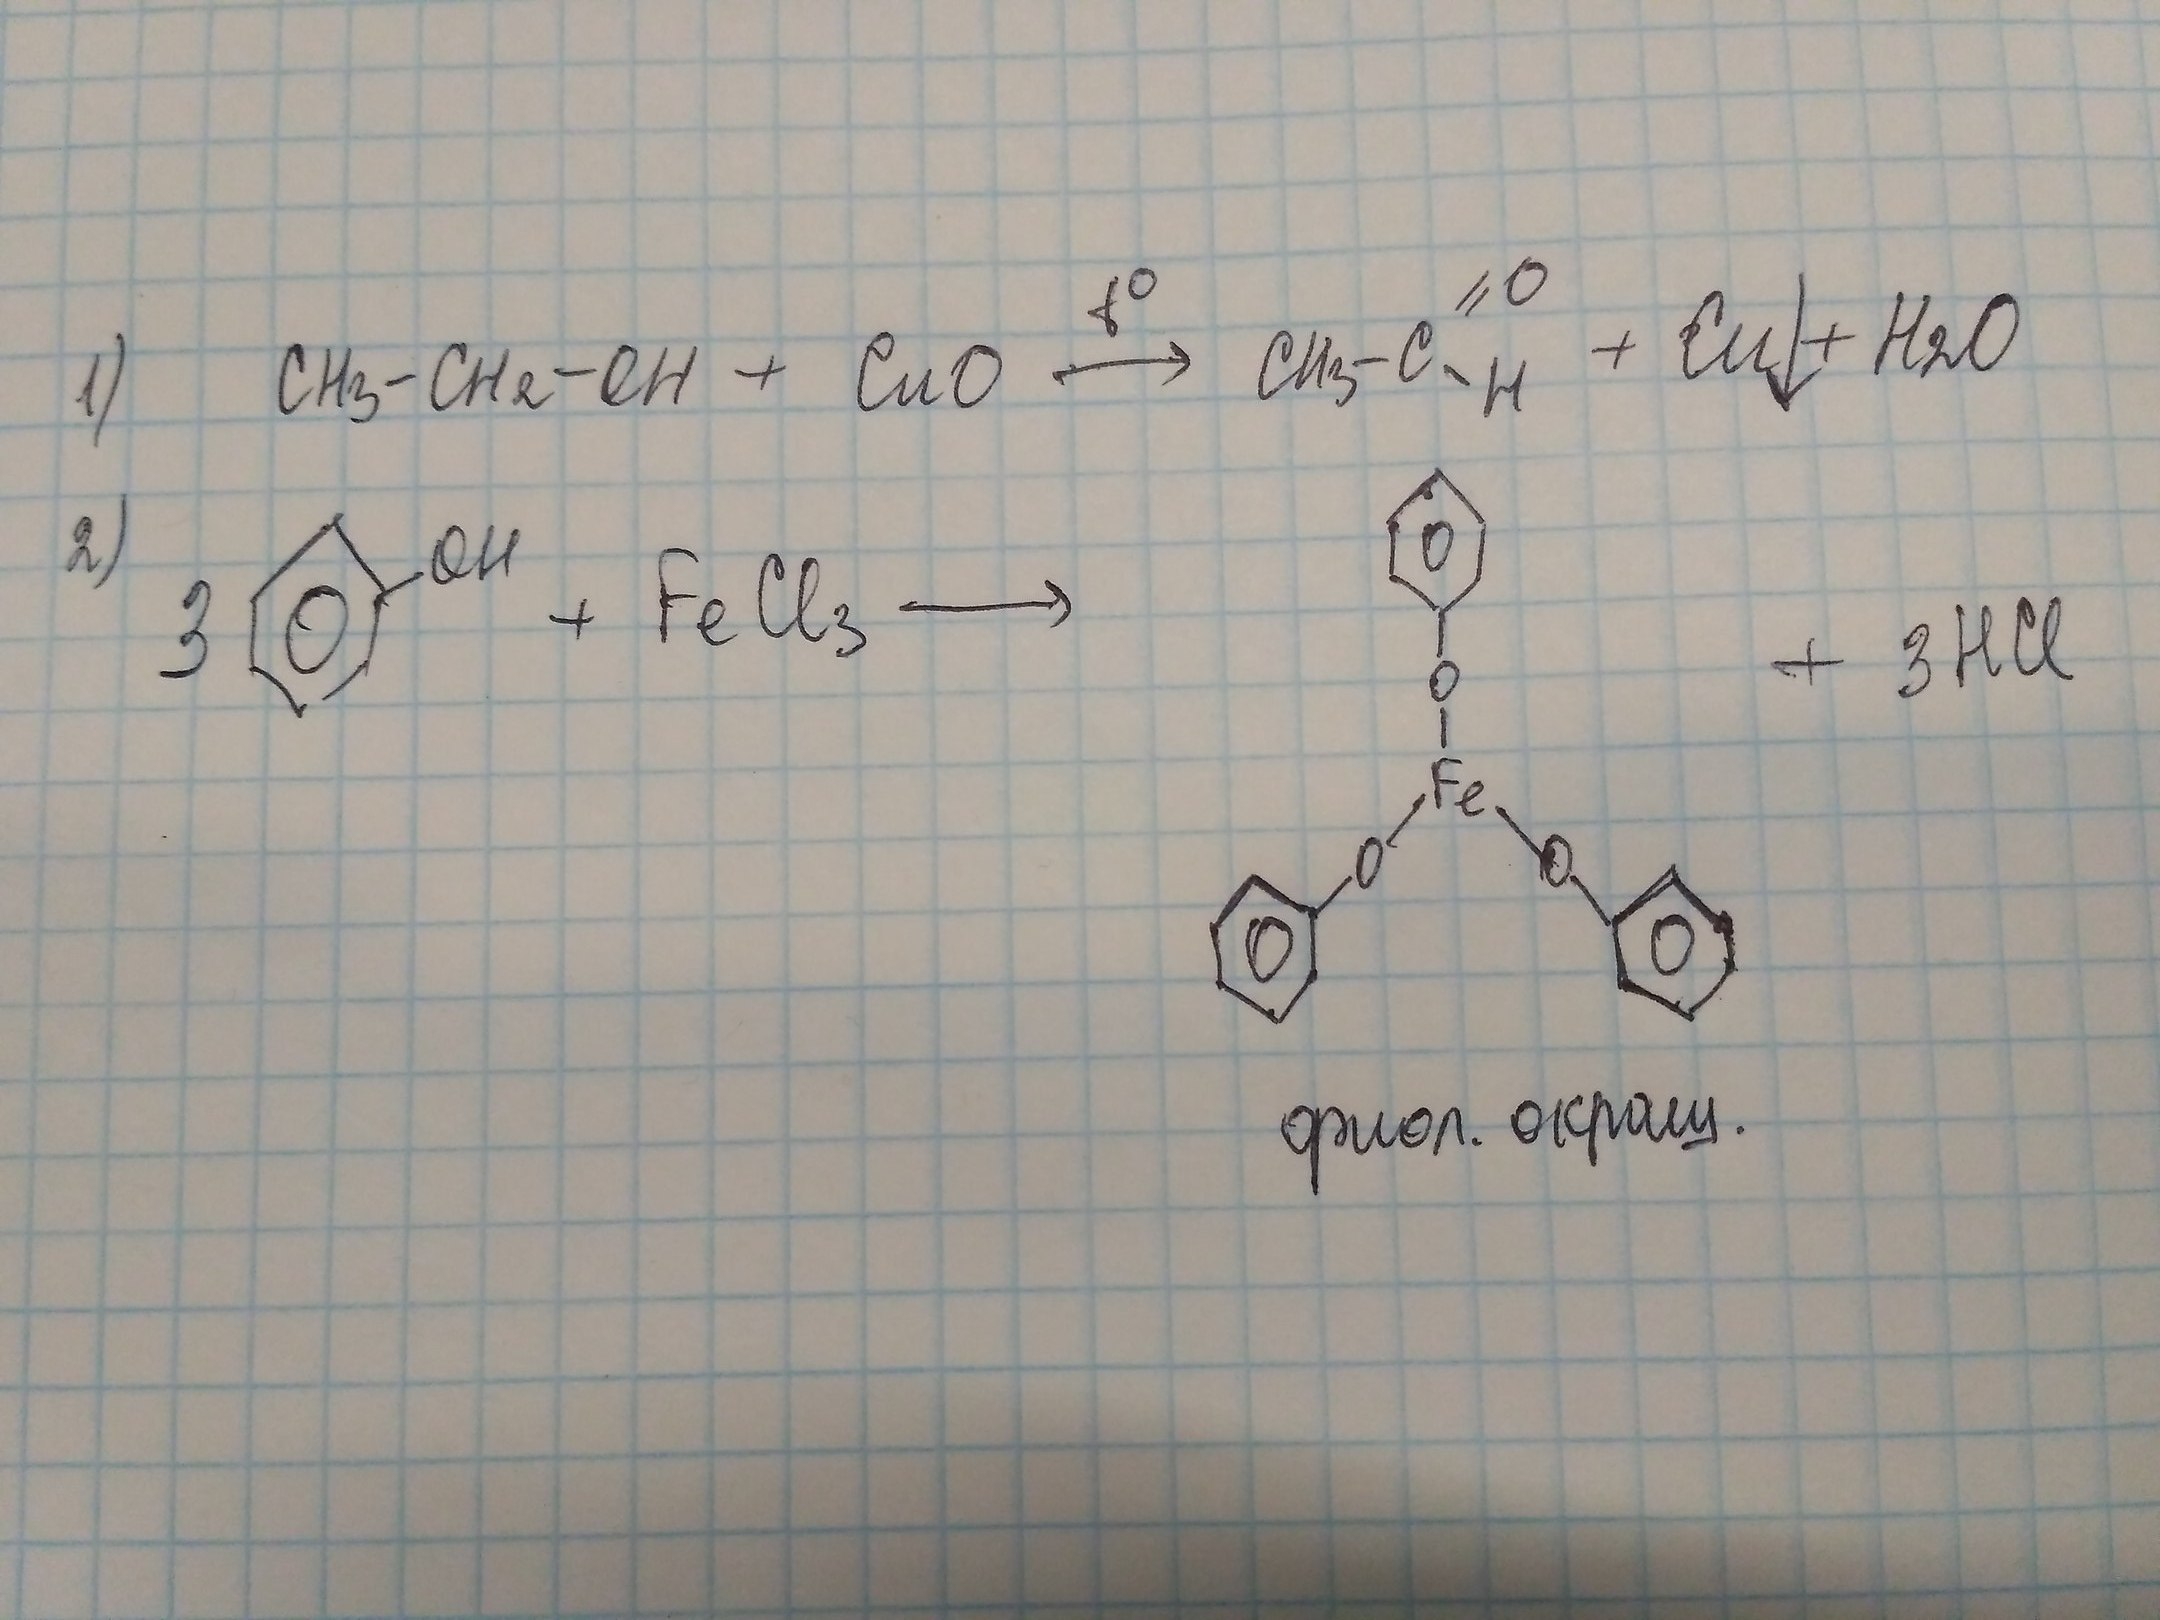 1) CH3-CH2-OH + CuO t° → CH3-C=O-H + Cu↓ + H2O
2) 3 OH + FeCl3 → O Fe O O + 3HCl
фиол. окращ.